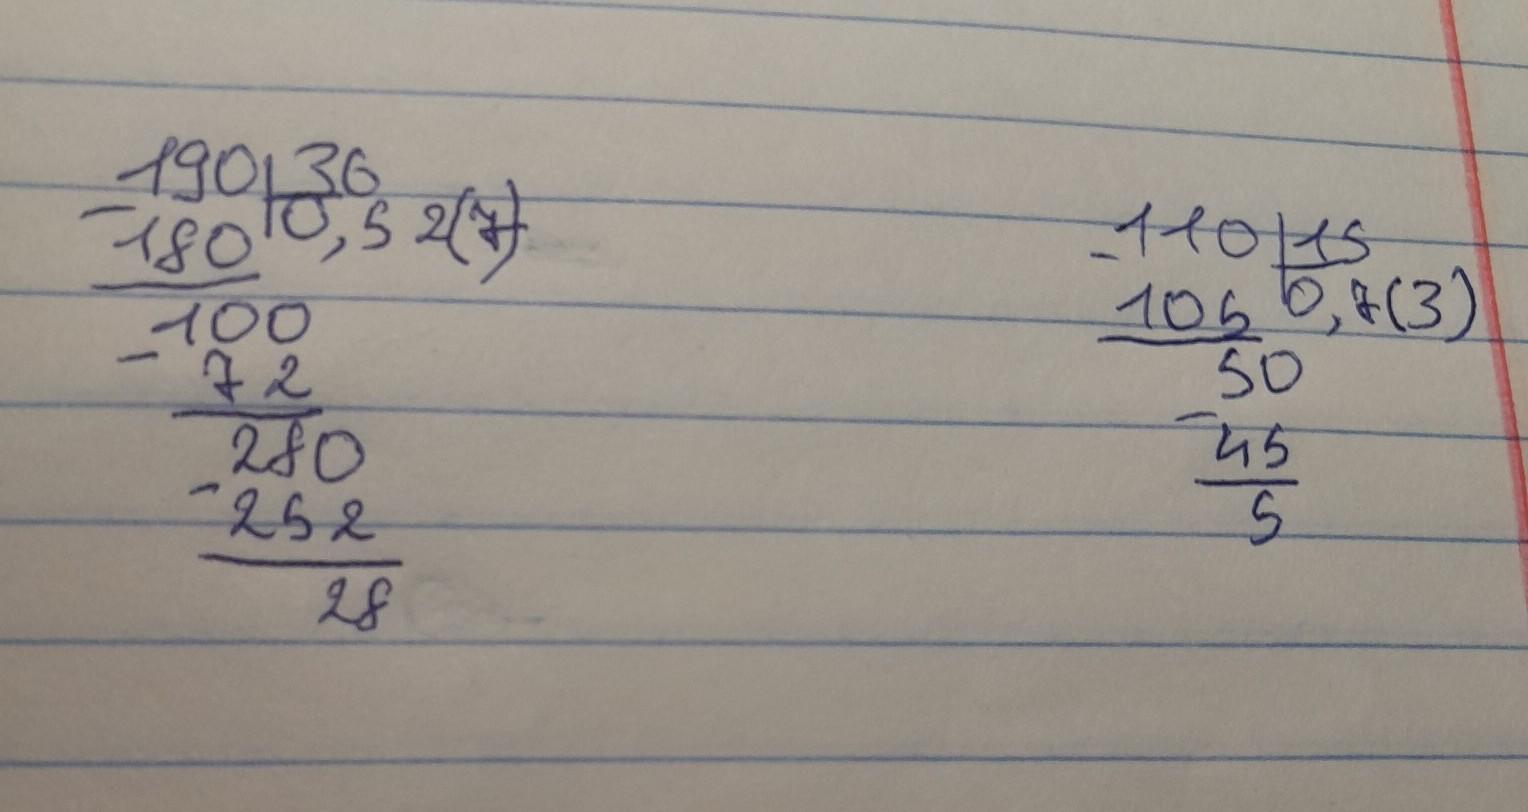 -190|36
180|0,52(7)
100
- 72
280
- 252
28
-110|15
105|0,7(3)
50
- 45
5